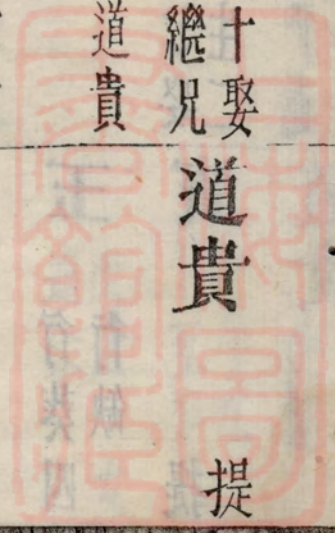 十娶
繼兄
道貴
道貴
提